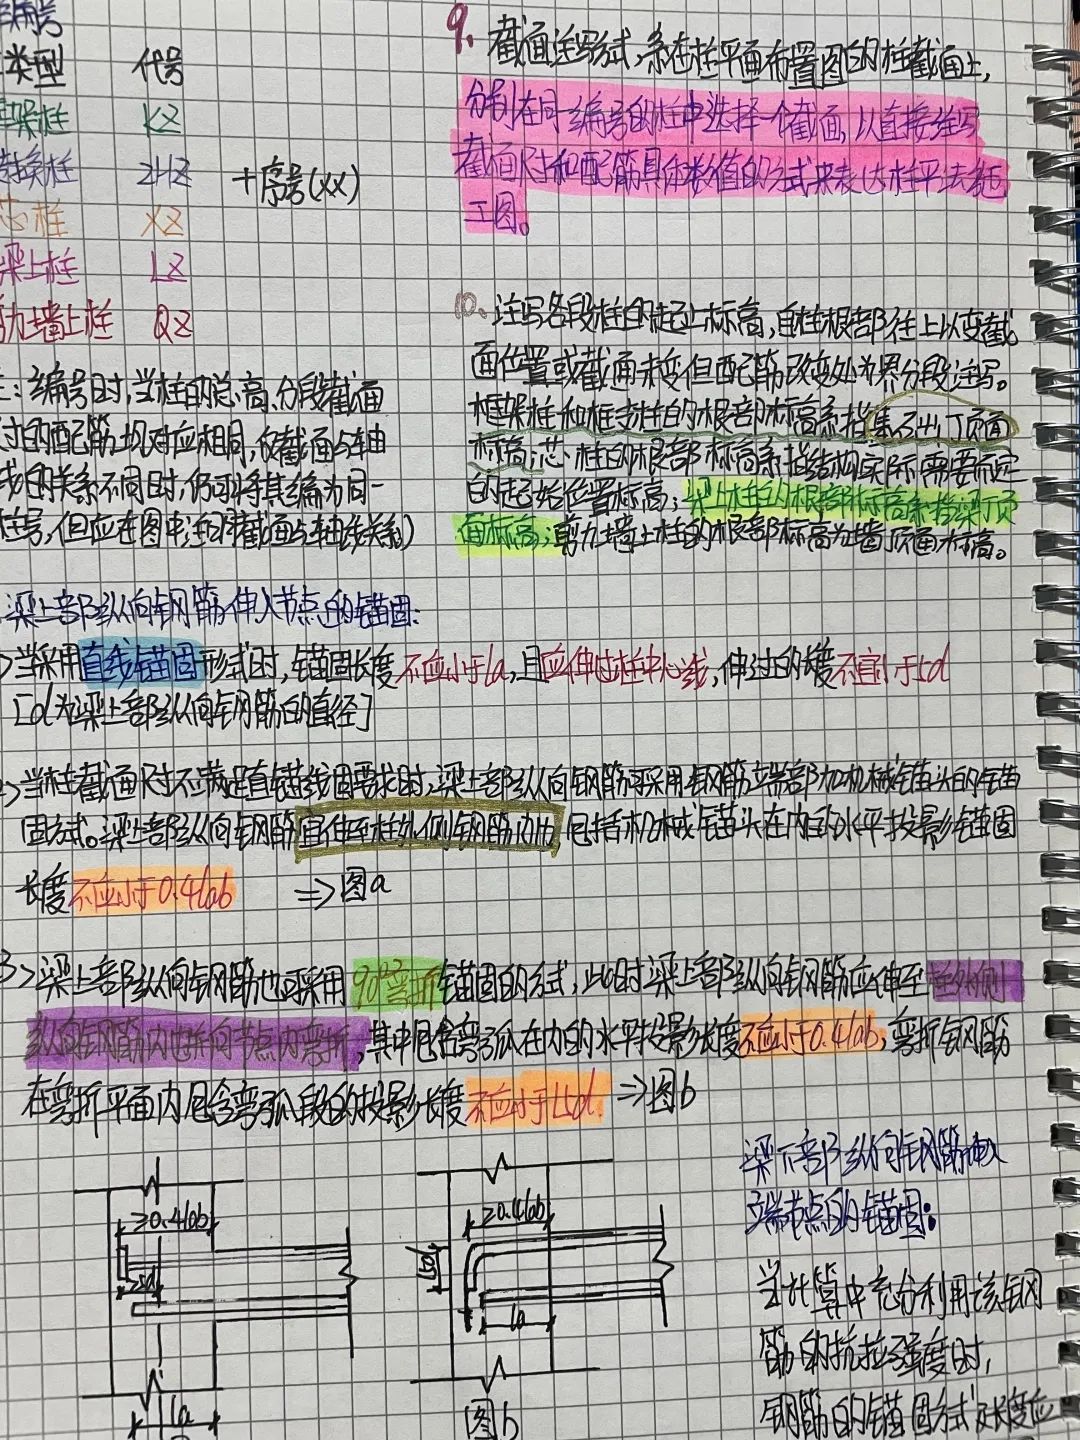 编号
类型 代号
框架柱 KZ
转换柱 ZHZ +序号(XX)
芯柱 XZ
梁上柱 LZ
剪力墙上柱 QZ
注：编号时，当柱的总高、分段截面
尺寸的配筋均对应相同，仅截面与轴
线的关系不同时，仍可将其编为同一
柱号，但应在图中注明截面与轴线关系）
9、截面注写方式，系在柱平面布置图的柱截面上，
分别在同一编号的柱中选择一个截面，以直接注写
截面尺寸和配筋具体数值的方式来表达柱平法施
工图。
10、注写各段柱的起止标高，自柱根部往上以变截
面位置或截面未变但配筋改变处为界分段注写。
框架柱和框支柱的根部标高系指基础顶面
标高；芯柱的根部标高系指结构实际需要而定
的起始位置标高；梁上柱的根部标高系指梁顶
面标高；剪力墙上柱的根部标高为墙顶面标高。
梁上部纵向钢筋伸入节点的锚固：
>当采用直线锚固形式时，锚固长度不应小于la，且应伸过柱中心线，伸过的长度不宜小于5d
[d为梁上部纵向钢筋的直径]
>当柱截面尺寸不满足直锚线固要求时，梁上部纵向钢筋可采用钢筋端部加机械锚头的锚
固方式。梁上部纵向钢筋宜伸至柱外侧钢筋内边，包括机械锚头在内的水平投影锚固
长度不应小于0.4lab ⇒图a
3>梁上部纵向钢筋也可采用90°弯折锚固的方式，此时梁上部纵向钢筋应伸至柱外侧
纵向钢筋内边并向节点内弯折，其中包含弯弧在内的水平投影长度不应小于0.4lab，弯折钢筋
在弯折平面内包含弯弧段的投影长度不应小于15d. ⇒图b
≥0.4lab
≥5d
la
≥0.4lab
15d
la
图b
梁下部纵向钢筋伸入
端节点的锚固：
当计算中充分利用该钢
筋的抗拉强度时，
钢筋的锚固方式及长度应